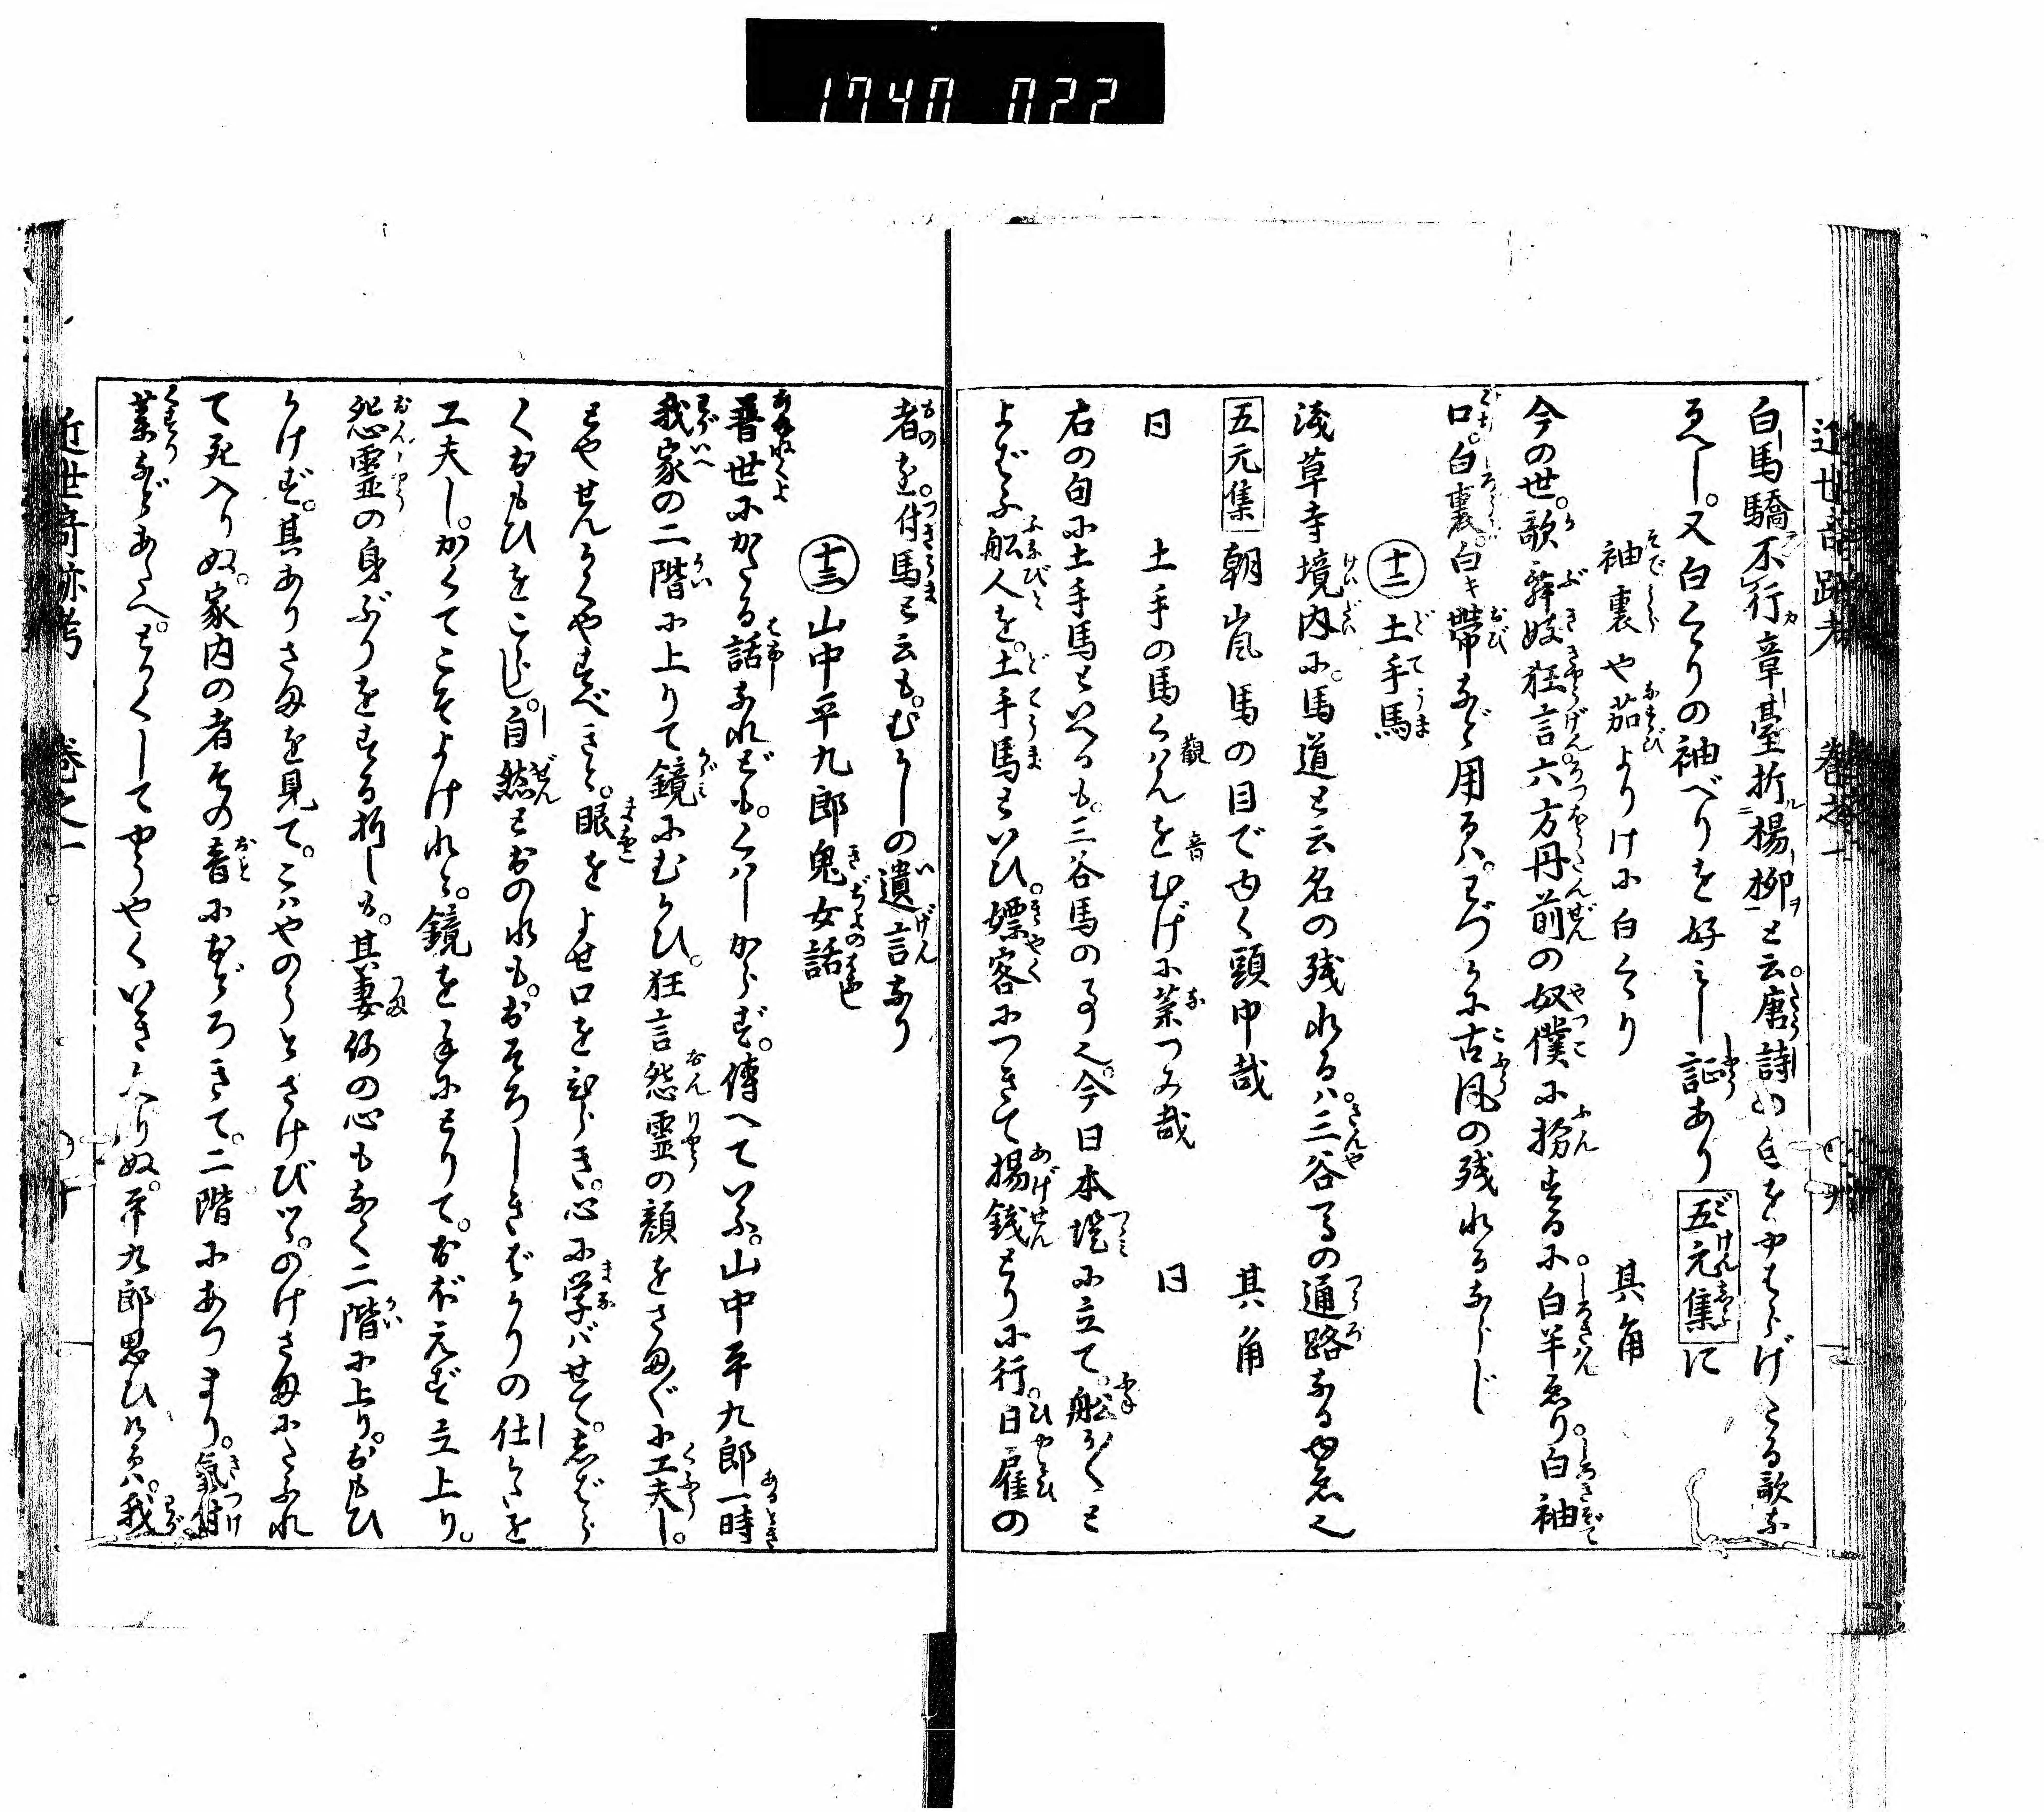 1740 022
近世奇跡考 巻之一
白馬驕不行章臺折楊柳と云。唐詩の句をやはらげたる歌な
るべし。又白くゝりの袖べりを好みし証あり五元集に
袖裏や茄よりけに白くゝり 其角
今の世。歌舞妓狂言。六方丹前の奴僕に扮するに。白半ゑり。白袖
口。白裏。白キ帯など用るハ。わづかに古風の残れるならし
十二 土手馬
浅草寺境内に。馬道と云名の残れるハ。三谷への通路なるゆゑ也
五元集 朝嵐馬の目でゆく頭巾哉 其角
同 土手の馬くハんをむげに菜つみ哉 同
右の句に土手馬といへるも。三谷馬の事也。今日本堤に立て。舩かくと
よばふ舩人を。土手馬といひ。嫖客につきて揚銭とりに行。日雇の
者を。付馬と云も。むかしの遺言なり
十三 山中平九郎鬼女話
普世にかたる話なれども。くハしからず。傳へていふ。山中平九郎一時
我家の二階に上りて鏡にむかひ。狂言怨霊の顔をさま〲に工夫し。
とやせんかくやすべきと。眼をよせ口をひらき。心に学バせて。しばら
くおもひをこらし。自然とおのれも。おそろしきばかりの仕かたを
工夫し。かくてこそよけれと。鏡を手にとりて。おぼえず立上り。
怨霊の身ぶりをする折しも。其妻何の心もなく二階に上り。おもひ
かけず。其ありさまを見て。こハやのうとさけびツヽ。のけさまにたふれ
て死入りぬ。家内の者その音におどろきて。二階にあつまり。氣付
薬などあたへ。とかくしてやうやくいき入りぬ。平九郎思ひけるハ。我
近世奇跡考 巻之一